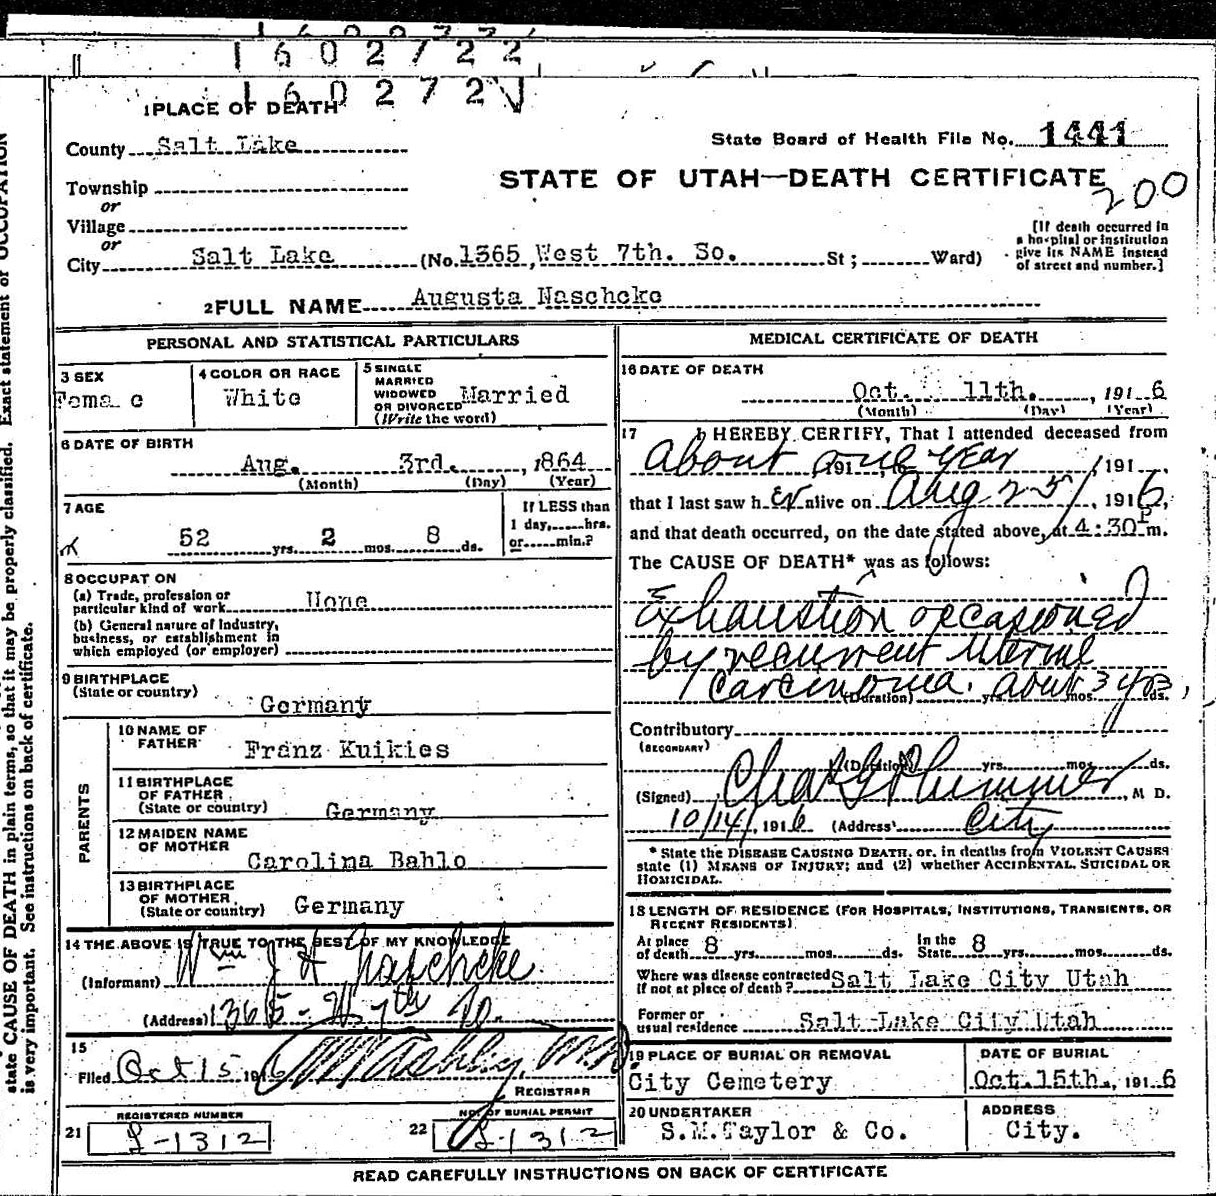 1602722
160272
1 PLACE OF DEATH
County Salt Lake
State Board of Health File No. 1441
Township
or
Village
or
City Salt Lake (No. 1365 West 7th. So. St; Ward)
STATE OF UTAH—DEATH CERTIFICATE
200
[If death occurred in
a hospital or institution
give its NAME instead
of street and number.]
2 FULL NAME Augusta Naschcke
PERSONAL AND STATISTICAL PARTICULARS
3 SEX
4 COLOR OR RACE White
5 SINGLE
MARRIED
WIDOWED
OR DIVORCED
(Write the word)
Married
6 DATE OF BIRTH
Aug. 3rd., 1864
(Month) (Day) (Year)
7 AGE
52 yrs. 2 mos. 8 ds.
If LESS than
1 day, hrs.
or min.?
8 OCCUPAT ON
(a) Trade, profession or
particular kind of work None
(b) General nature of Industry,
business, or establishment in
which employed (or employer)
9 BIRTHPLACE
(State or country)
Germany
PARENTS
10 NAME OF
FATHER Franz Kuikies
11 BIRTHPLACE
OF FATHER
(State or country) Germany
12 MAIDEN NAME
OF MOTHER
Carolina Bahlo
13 BIRTHPLACE
OF MOTHER
(State or country) Germany
14 THE ABOVE IS TRUE TO THE BEST OF MY KNOWLEDGE
(Informant) Wm J H Naschcke
(Address) 1365 - W 7th So.
15
Filed Oct 15 1916
REGISTRAR
REGISTERED NUMBER
21 L-1312
NO. OF BURIAL PERMIT
22 L-1312
MEDICAL CERTIFICATE OF DEATH
16 DATE OF DEATH
Oct. 11th., 1916
(Month) (Day) (Year)
17 I HEREBY CERTIFY, That I attended deceased from
About one year, 191
that I last saw her alive on Aug 25, 1916,
and that death occurred, on the date stated above, at 4:30 P m.
The CAUSE OF DEATH* was as follows:
Exhaustion occasioned
by recurrent Uterine
Carcinoma. about 3 yrs,
(Duration) yrs. mos. ds.
Contributory
(SECONDARY)
(Duration) yrs. mos. ds.
(Signed) Chas G Plummer, M D.
10/14, 1916 (Address) City
* State the DISEASE CAUSING DEATH, or, in deaths from VIOLENT CAUSES
state (1) MEANS OF INJURY; and (2) whether ACCIDENTAL, SUICIDAL OR
HOMICIDAL.
18 LENGTH OF RESIDENCE (FOR HOSPITALS, INSTITUTIONS, TRANSIENTS, OR
RECENT RESIDENTS)
At place
of death 8 yrs. mos. ds.
In the
State 8 yrs. mos. ds.
Where was disease contracted
if not at place of death? Salt Lake City Utah
Former or
usual residence Salt Lake City Utah
19 PLACE OF BURIAL OR REMOVAL
City Cemetery
DATE OF BURIAL
Oct. 15th., 1916
20 UNDERTAKER
S.M. Taylor & Co.
ADDRESS
City.
READ CAREFULLY INSTRUCTIONS ON BACK OF CERTIFICATE
state CAUSE OF DEATH in plain terms, so that it may be properly classified. Exact statement of OCCUPATION
is very important. See instructions on back of certificate.